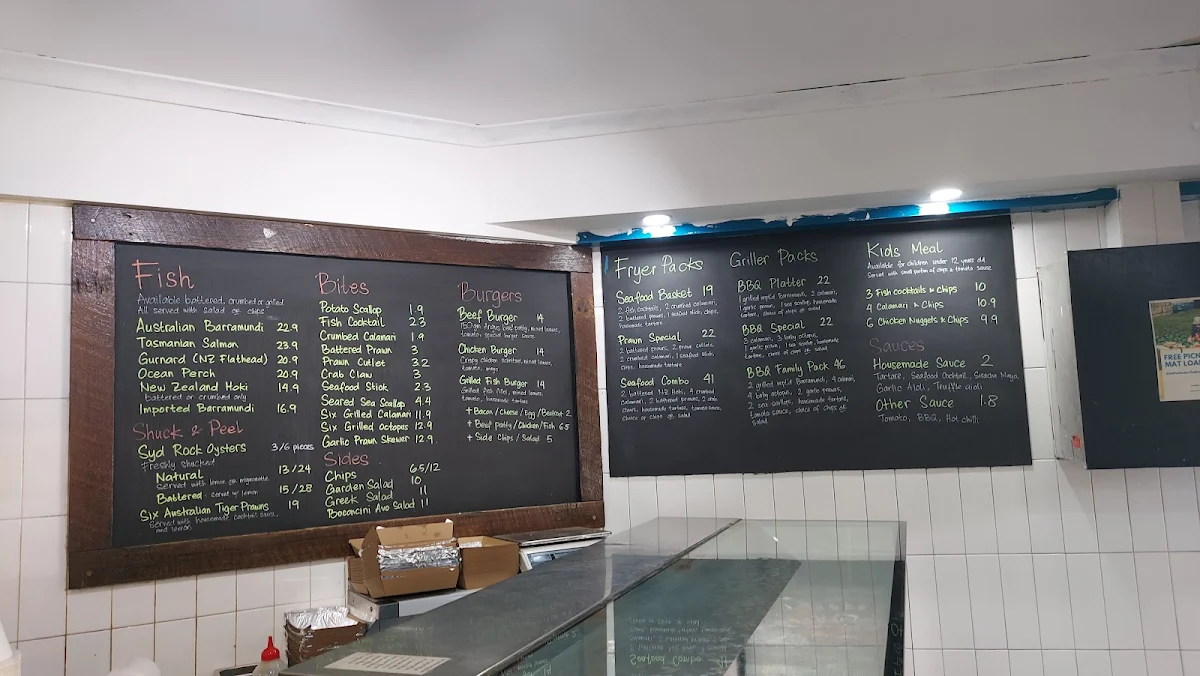 Fish
Available battered, crumbed or grilled
All served with salad or chips
Australian Barramundi 22.9
Tasmanian Salmon 23.9
Gurnard (NZ Flathead) 20.9
Ocean Perch 20.9
New Zealand Hoki 14.9
battered or crumbed only
Imported Barramundi 16.9
Shuck & Peel
Syd Rock Oysters 3/6 pieces
Freshly shucked
Natural 13/24
served with lemon or mignonette
Battered - serve w/ lemon 15/28
Six Australian Tiger Prawns 19
served with homemade cocktail sauce,
and lemon
Bites
Potato Scallop 1.9
Fish Cocktail 2.3
Crumbed Calamari 1.9
Battered Prawn 3
Prawn Cutlet 3.2
Crab Claw 3
Seafood Stick 2.3
Seared Sea Scallop 4.4
Six Grilled Calamari 11.9
Six Grilled Octopus 12.9
Garlic Prawn Skewer 12.9
Sides
Chips 6.5/12
Garden Salad 10
Greek Salad 11
Bocconcini Avo Salad 11
Burgers
Beef Burger 14
150gm Angus beef patty, mixed leaves,
tomato, special burger sauce
Chicken Burger 14
Crispy chicken schnitzel, mixed leaves,
tomato, mayo
Grilled Fish Burger 14
Grilled fish fillet, mixed leaves,
tomato, homemade tartare
+ Bacon/Cheese/Egg/Beetroot 2
+ Beef patty/Chicken/Fish 6.5
+ Side Chips / Salad 5
Fryer Packs
Seafood Basket 19
2 fish cocktails, 2 crumbed calamari,
2 battered prawns, 1 seafood stick, chips,
homemade tartare
Prawn Special 22
2 battered prawns, 2 prawn cutlets,
2 crumbed calamari, 1 seafood stick,
chips, homemade tartare
Seafood Combo 41
2 battered NZ Hoki, 4 crumbed
calamari, 2 battered prawns, 2 crab
claws, homemade tartare, tomato sauce,
choice of chips or salad
Griller Packs
BBQ Platter 22
1 grilled imp'd Barramundi, 2 calamari,
1 garlic prawn, 1 sea scallop, homemade
tartare, choice of chips or salad
BBQ Special 22
3 calamari, 3 baby octopus,
1 garlic prawn, 1 sea scallop, homemade
tartare, choice of chips or salad
BBQ Family Pack 46
2 grilled imp'd Barramundi, 4 calamari,
4 baby octopus, 2 garlic prawns,
2 sea scallops, homemade tartare,
tomato sauce, choice of chips or
salad
Kids Meal
Available for children under 12 years old
Served with small portion of chips & tomato sauce
3 Fish cocktails & Chips 10
4 Calamari & Chips 10.9
6 Chicken Nuggets & Chips 9.9
Sauces
Homemade Sauce 2
Tartare, Seafood Cocktail, Sriracha Mayo,
Garlic Aioli, Truffle aioli
Other Sauce 1.8
Tomato, BBQ, Hot chilli
FREE PICN
MAT LOA